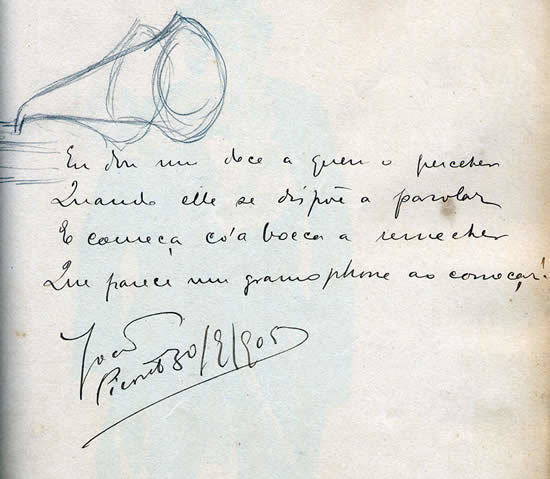 Eu dou um doce a quem o perceber
Quando elle se dispõe a parolar
E começa có'a bocca a remecher
Que parece um gramophone ao começar!
João
30/9/905